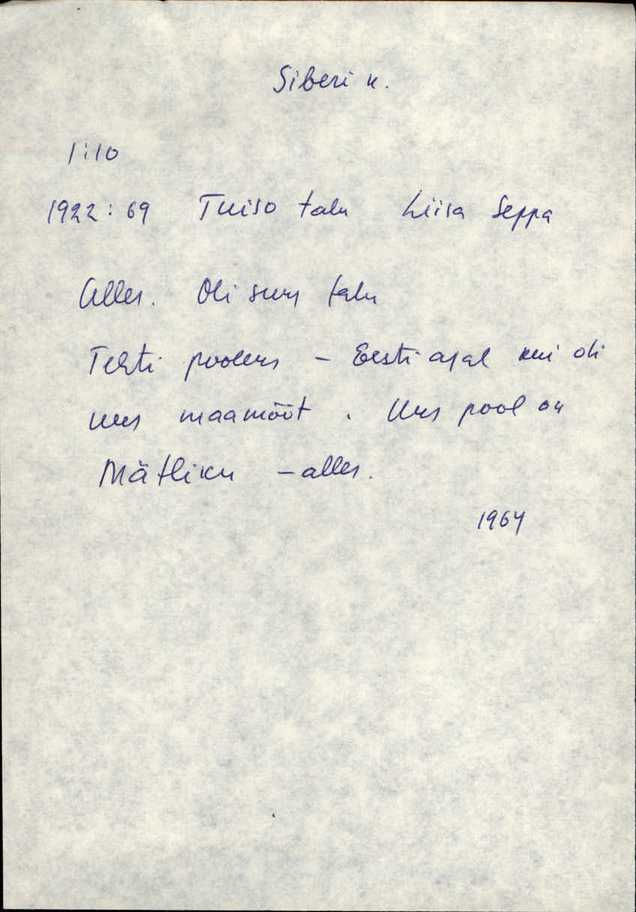 Siberi k.
1:10
1922:69 Tuiso talu Liisa Seppa
Alles. Oli suur talu
Tehti pooleks – Eesti ajal kui oli
uus maamõõt. Uus pool on
Mätliku – alles.
1964